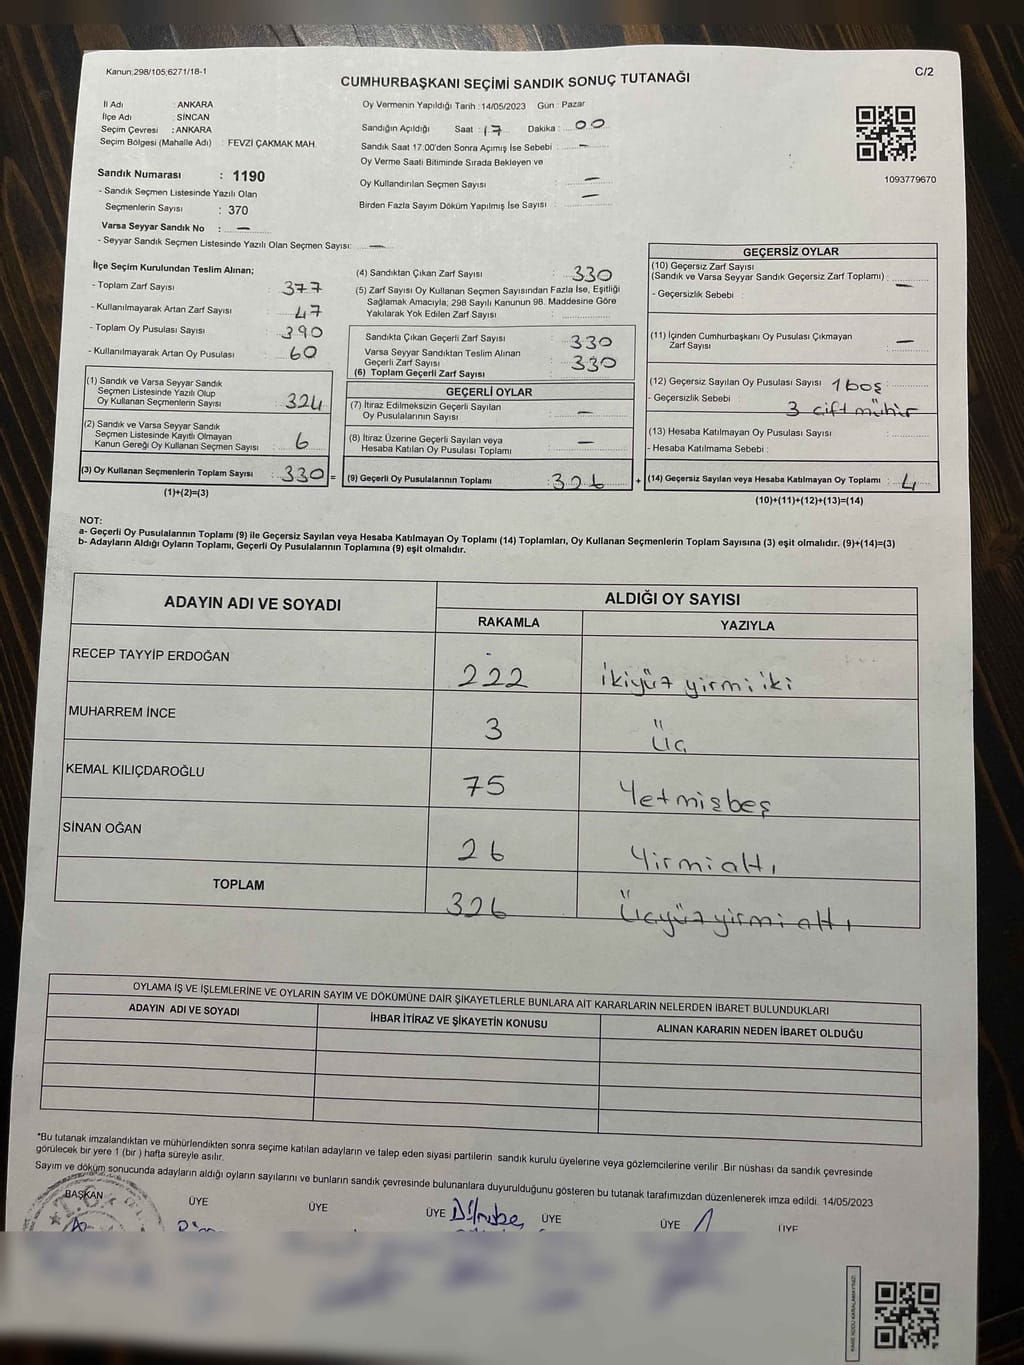 Kanun;298/105;6271/18-1
C/2
CUMHURBAŞKANI SEÇİMİ SANDIK SONUÇ TUTANAĞI
İl Adı : ANKARA
İlçe Adı : SİNCAN
Seçim Çevresi : ANKARA
Seçim Bölgesi (Mahalle Adı) : FEVZİ ÇAKMAK MAH.
Oy Vermenin Yapıldığı Tarih : 14/05/2023 Gün : Pazar
Sandığın Açıldığı Saat : 17 Dakika : 00
Sandık Saat 17.00'den Sonra Açımış İse Sebebi : —
Oy Verme Saati Bitiminde Sırada Bekleyen ve
Oy Kullandırılan Seçmen Sayısı : —
Birden Fazla Sayım Döküm Yapılmış İse Sayısı : —
1093779670
Sandık Numarası : 1190
- Sandık Seçmen Listesinde Yazılı Olan
Seçmenlerin Sayısı : 370
Varsa Seyyar Sandık No : —
- Seyyar Sandık Seçmen Listesinde Yazılı Olan Seçmen Sayısı: —
İlçe Seçim Kurulundan Teslim Alınan;
- Toplam Zarf Sayısı : 377
- Kullanılmayarak Artan Zarf Sayısı : 47
- Toplam Oy Pusulası Sayısı : 390
- Kullanılmayarak Artan Oy Pusulası : 60
(1) Sandık ve Varsa Seyyar Sandık
Seçmen Listesinde Yazılı Olup
Oy Kullanan Seçmenlerin Sayısı : 324
(2) Sandık ve Varsa Seyyar Sandık
Seçmen Listesinde Kayıtlı Olmayan
Kanun Gereği Oy Kullanan Seçmen Sayısı : 6
(3) Oy Kullanan Seçmenlerin Toplam Sayısı : 330 =
(1)+(2)=(3)
(4) Sandıktan Çıkan Zarf Sayısı : 330
(5) Zarf Sayısı Oy Kullanan Seçmen Sayısından Fazla İse, Eşitliği
Sağlamak Amacıyla; 298 Sayılı Kanunun 98. Maddesine Göre
Yakılarak Yok Edilen Zarf Sayısı :
Sandıkta Çıkan Geçerli Zarf Sayısı : 330
Varsa Seyyar Sandıktan Teslim Alınan
Geçerli Zarf Sayısı : 330
(6) Toplam Geçerli Zarf Sayısı :
GEÇERLİ OYLAR
(7) İtiraz Edilmeksizin Geçerli Sayılan
Oy Pusulalarının Sayısı : —
(8) İtiraz Üzerine Geçerli Sayılan veya
Hesaba Katılan Oy Pusulası Toplamı : —
(9) Geçerli Oy Pusulalarının Toplamı : 326 +
GEÇERSİZ OYLAR
(10) Geçersiz Zarf Sayısı
(Sandık ve Varsa Seyyar Sandık Geçersiz Zarf Toplamı) : —
- Geçersizlik Sebebi :
(11) İçinden Cumhurbaşkanı Oy Pusulası Çıkmayan
Zarf Sayısı : —
(12) Geçersiz Sayılan Oy Pusulası Sayısı : 1 boş
- Geçersizlik Sebebi : 3 çift mühür
(13) Hesaba Katılmayan Oy Pusulası Sayısı :
- Hesaba Katılmama Sebebi :
(14) Geçersiz Sayılan veya Hesaba Katılmayan Oy Toplamı : 4
(10)+(11)+(12)+(13)=(14)
NOT:
a- Geçerli Oy Pusulalarının Toplamı (9) ile Geçersiz Sayılan veya Hesaba Katılmayan Oy Toplamı (14) Toplamları, Oy Kullanan Seçmenlerin Toplam Sayısına (3) eşit olmalıdır. (9)+(14)=(3)
b- Adayların Aldığı Oyların Toplamı, Geçerli Oy Pusulalarının Toplamına (9) eşit olmalıdır.
ADAYIN ADI VE SOYADI
ALDIĞI OY SAYISI
RAKAMLA YAZIYLA
RECEP TAYYİP ERDOĞAN 222 ikiyüz yirmi iki
MUHARREM İNCE 3 üç
KEMAL KILIÇDAROĞLU 75 Yetmişbeş
SİNAN OĞAN 26 Yirmialtı
TOPLAM 326 Üçyüzyirmialtı
OYLAMA İŞ VE İŞLEMLERİNE VE OYLARIN SAYIM VE DÖKÜMÜNE DAİR ŞİKAYETLERLE BUNLARA AİT KARARLARIN NELERDEN İBARET BULUNDUKLARI
ADAYIN ADI VE SOYADI İHBAR İTİRAZ VE ŞİKAYETİN KONUSU ALINAN KARARIN NEDEN İBARET OLDUĞU
*Bu tutanak imzalandıktan ve mühürlendikten sonra seçime katılan adayların ve talep eden siyasi partilerin sandık kurulu üyelerine veya gözlemcilerine verilir .Bir nüshası da sandık çevresinde
görülecek bir yere 1 (bir ) hafta süreyle asılır.
Sayım ve döküm sonucunda adayların aldığı oyların sayılarını ve bunların sandık çevresinde bulunanlara duyurulduğunu gösteren bu tutanak tarafımızdan düzenlenerek imza edildi. 14/05/2023
BAŞKAN ÜYE ÜYE ÜYE Dilrube ÜYE ÜYE ÜYE